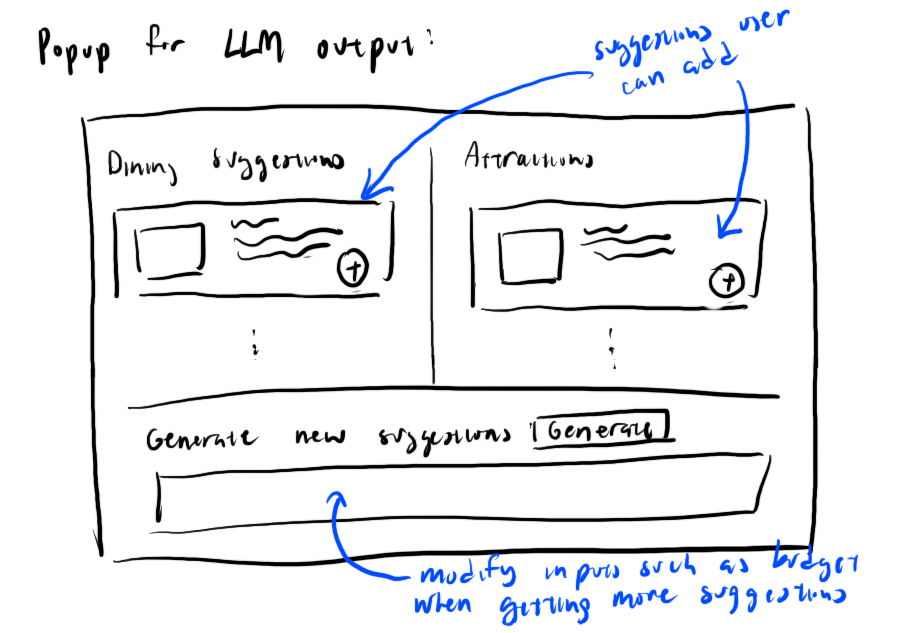 Popup for LLM output:
suggestions user
can add
Dining suggestions
Attractions
+
+
Generate new suggestions Generate
modify inputs such as budget
when getting more suggestions